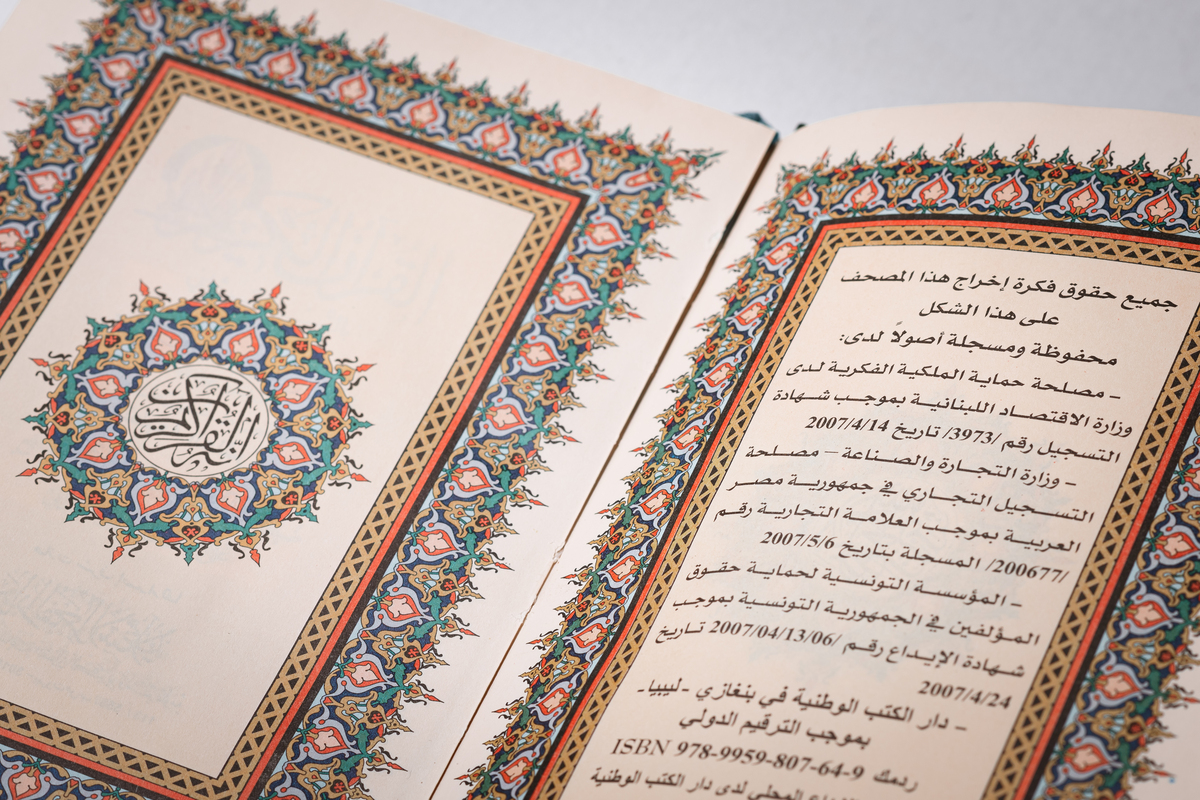 جميع حقوق فكرة إخراج هذا المصحف
على هذا الشكل
محفوظة ومسجلة أصولاً لدى:
- مصلحة حماية الملكية الفكرية لدى
وزارة الاقتصاد اللبنانية بموجب شهادة
التسجيل رقم /3973/ تاريخ 2007/4/14
- وزارة التجارة والصناعة – مصلحة
التسجيل التجاري في جمهورية مصر
العربية بموجب العلامة التجارية رقم
/200677/ المسجلة بتاريخ 2007/5/6
- المؤسسة التونسية لحماية حقوق
المؤلفين في الجمهورية التونسية بموجب
شهادة الإيداع رقم /2007/04/13/06 تاريخ
2007/4/24
- دار الكتب الوطنية في بنغازي - ليبيا-
بموجب الترقيم الدولي
ردمك ISBN 978-9959-807-64-9
المحلي لدى دار الكتب الوطنية
القرآن الكريم